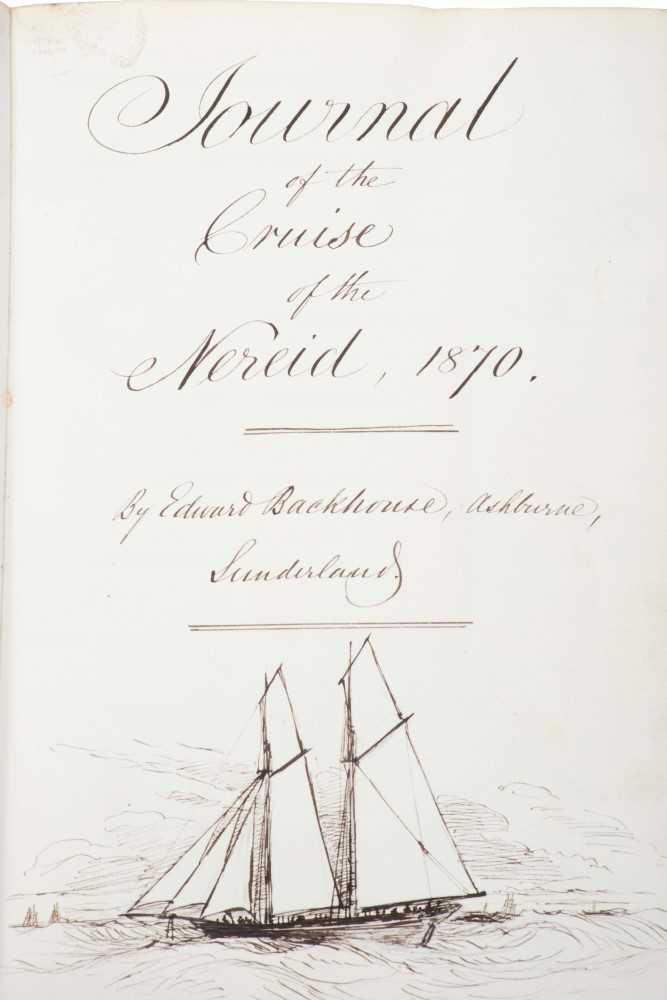 Journal
of the
Cruise
of the
Nereid, 1870.
By Edward Backhouse, Ashburne,
Sunderland.